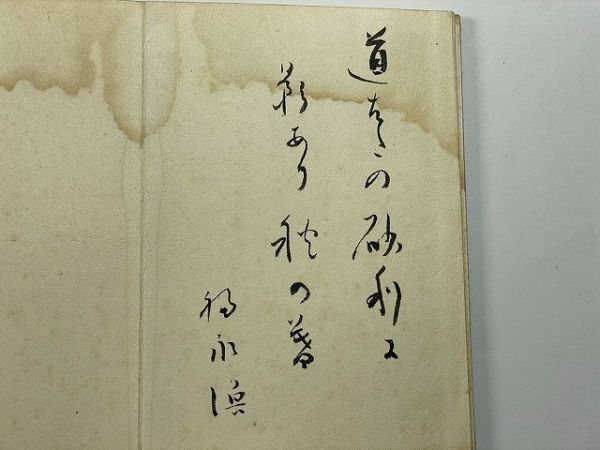 道ばたの砂利に
影あり秋の暮
福永